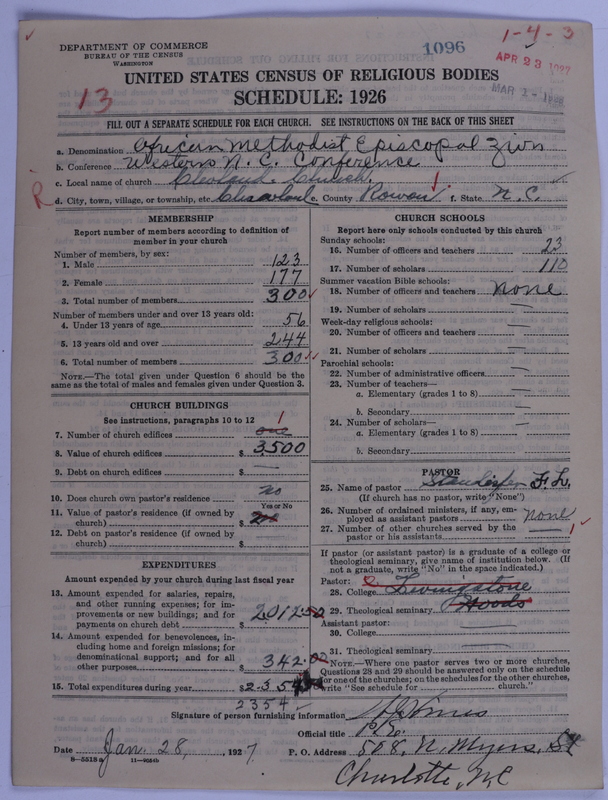 1096
1-4-3
DEPARTMENT OF COMMERCE
BUREAU OF THE CENSUS
WASHINGTON
APR 23 1927
MAR 2 - 1928
UNITED STATES CENSUS OF RELIGIOUS BODIES
13
SCHEDULE: 1926
FILL OUT A SEPARATE SCHEDULE FOR EACH CHURCH. SEE INSTRUCTIONS ON THE BACK OF THIS SHEET
a. Denomination African Methodist Episcopal Zion
b. Conference Western N. C. Conference
c. Local name of church Cleveland Church
R d. City, town, village, or township, etc. Cleveland e. County Rowan f. State N. C.
MEMBERSHIP
Report number of members according to definition of
member in your church
Number of members, by sex:
1. Male 123
2. Female 177
3. Total number of members 300
Number of members under and over 13 years old:
4. Under 13 years of age 56
5. 13 years old and over 244
6. Total number of members 300
NOTE.—The total given under Question 6 should be the
same as the total of males and females given under Question 3.
CHURCH BUILDINGS
See instructions, paragraphs 10 to 12
7. Number of church edifices one 1
8. Value of church edifices $ 3500
9. Debt on church edifices $ —
10. Does church own pastor's residence no
Yes or No
11. Value of pastor's residence (if owned by
church) $
12. Debt on pastor's residence (if owned by
church) $
EXPENDITURES
Amount expended by your church during last fiscal year
13. Amount expended for salaries, repairs,
and other running expenses; for im-
provements or new buildings; and for
payments on church debt $ 2012.50
14. Amount expended for benevolences, in-
cluding home and foreign missions; for
denominational support; and for all
other purposes $ 342.00
15. Total expenditures during year $ 2354
2354 -
CHURCH SCHOOLS
Report here only schools conducted by this church
Sunday schools:
16. Number of officers and teachers 23
17. Number of scholars 110
Summer vacation Bible schools:
18. Number of officers and teachers none
19. Number of scholars —
Week-day religious schools:
20. Number of officers and teachers —
21. Number of scholars —
Parochial schools:
22. Number of administrative officers —
23. Number of teachers—
a. Elementary (grades 1 to 8) —
b. Secondary —
24. Number of scholars—
a. Elementary (grades 1 to 8) —
b. Secondary —
PASTOR
25. Name of pastor F. L.
(If church has no pastor, write "None")
26. Number of ordained ministers, if any, em-
ployed as assistant pastors none
27. Number of other churches served by the
pastor or his assistants — 1
If pastor (or assistant pastor) is a graduate of a college or
theological seminary, give name of institution below. (If
not a graduate, write "No" in the space indicated.)
Pastor:
28. College Livingstone
29. Theological seminary Hoods
Assistant pastor:
30. College —
31. Theological seminary —
NOTE.—Where one pastor serves two or more churches,
Questions 28 and 29 should be answered only on the schedule
for one of the churches; on the schedules for the other churches,
write "See schedule for church."
Signature of person furnishing information
Official title P. E.
Date Jan. 28, 1927 P. O. Address 508, N. Myers, St
8-5518a 11-9564b
Charlotte, N C